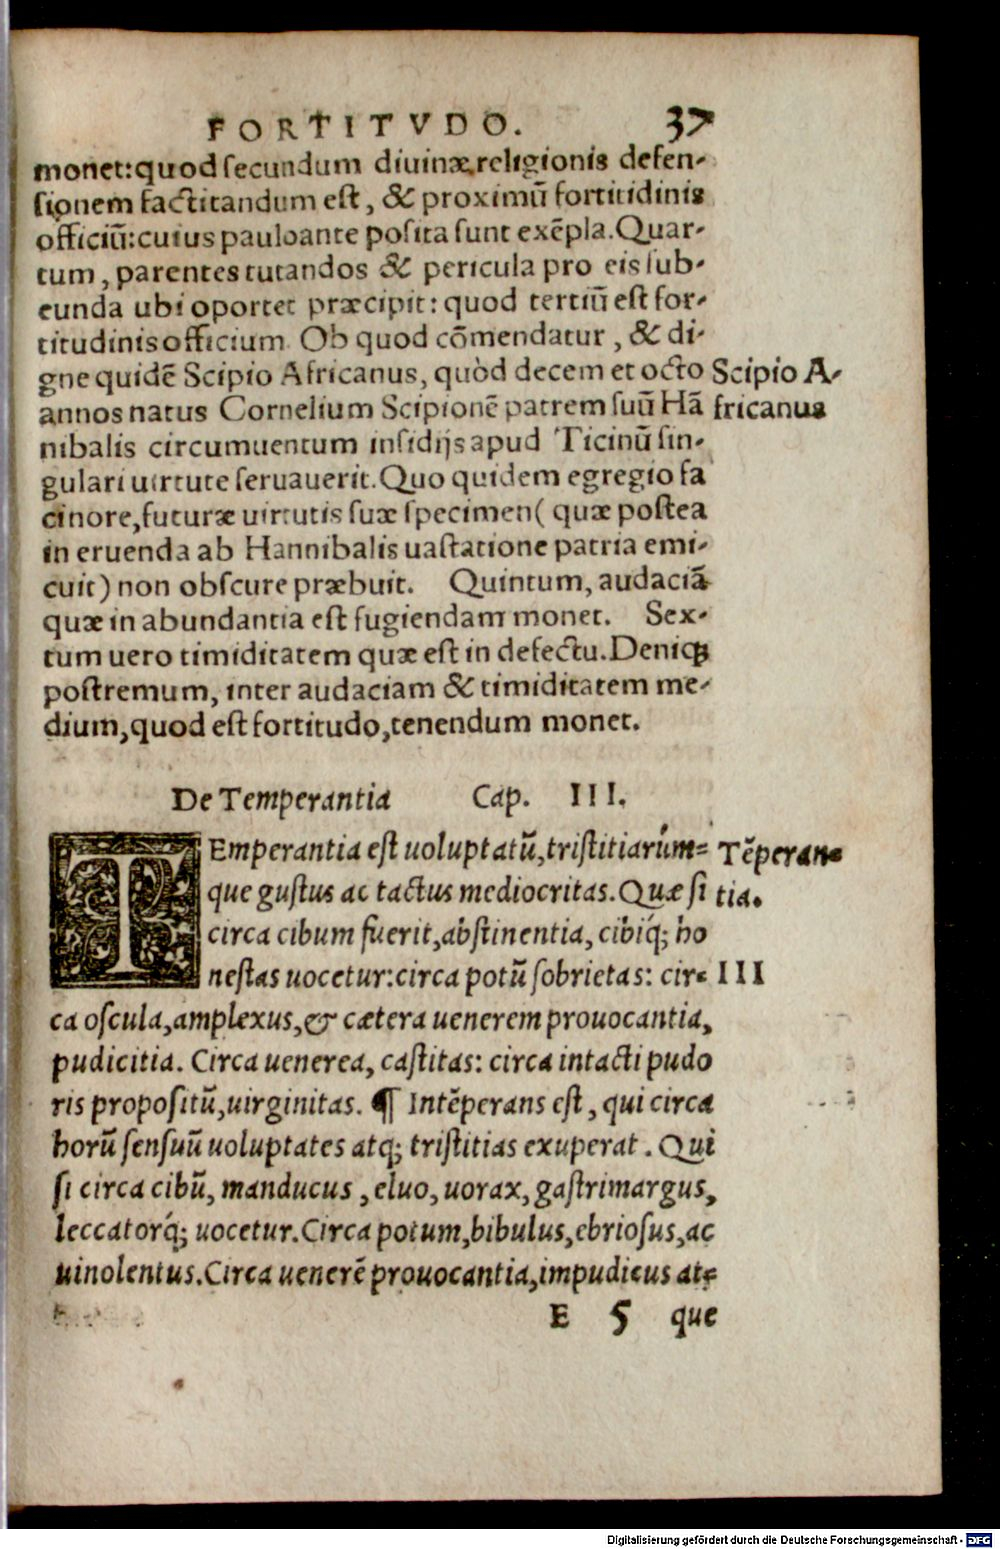 FORTITVDO. 37
monet:quod secundum diuinæ religionis defen-
sionem factitandum est, & proximū fortitidinis
officiū:cuius pauloante posita sunt exēpla.Quar-
tum, parentes tutandos & pericula pro eis sub-
eunda ubi oportet præcipit: quod tertiū est for-
titudinis officium. Ob quod cōmendatur, & di-
gne quidē Scipio Africanus, quòd decem et octo
Scipio A-
annos natus Cornelium Scipionē patrem suū Hā
fricanus
nibalis circumuentum insidijs apud Ticinū sin-
gulari uirtute seruauerit.Quo quidem egregio fa
cinore,futuræ uirtutis suæ specimen( quæ postea
in eruenda ab Hannibalis uastatione patria emi-
cuit) non obscure præbuit. Quintum, audaciā
quæ in abundantia est fugiendam monet. Sex-
tum uero timiditatem quæ est in defectu.Deniqꝫ
postremum, inter audaciam & timiditatem me-
dium,quod est fortitudo,tenendum monet.
De Temperantia Cap. III.
TEmperantia est uoluptatū,tristitiarúm=
Tēperan=
que gustus ac tactus mediocritas.Quæ si
tia.
circa cibum fuerit,abstinentia, cibiq́; ho
nestas uocetur:circa potū sobrietas: cir=
III
ca oscula,amplexus,& cætera uenerem prouocantia,
pudicitia. Circa uenerea, castitas: circa intacti pudo
ris propositū,uirginitas. ¶ Intēperans est, qui circa
horū sensuū uoluptates atq; tristitias exuperat. Qui
si circa cibū, manducus, eluo, uorax, gastrimargus,
leccatorq́; uocetur.Circa potum,bibulus,ebriosus,ac
uinolentus.Circa uenerē prouocantia,impudicus at=
E 5 que
Digitalisierung gefördert durch die Deutsche Forschungsgemeinschaft - DFG